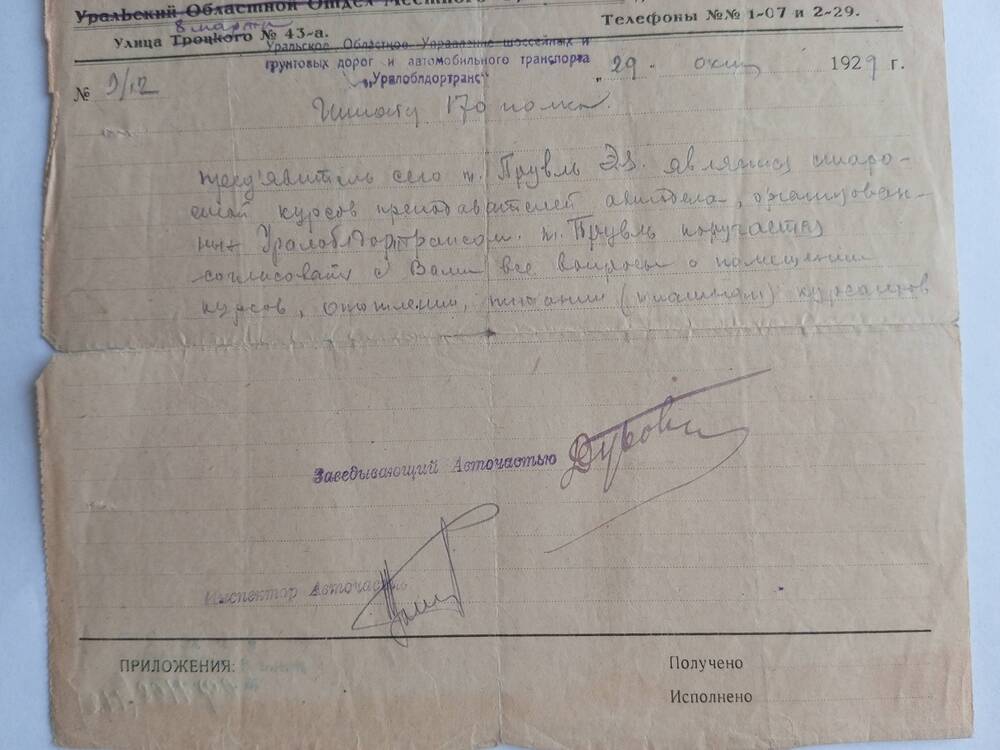 Уральский Областной Отдел Местного
8 марта
Улица Троцкого № 43-а.
Телефоны №№ 1-07 и 2-29.
Уральское Областное Управление шоссейных и
грунтовых дорог и автомобильного транспорта
„Уралоблдортранс"
№ 9/12
„29" окт 1929 г.
Штабу 170 полка.
Пред'явитель сего т. Прувль Э.З. является старо-
стой курсов преподавателей автодела, организован-
ных Уралоблдортрансом. т. Прувль поручается
согласовать с Вами все вопросы о помещении
курсов, отоплении, питании () курсантов
Заведывающий Авточастью
Инспектор Авточасть
ПРИЛОЖЕНИЯ:
Получено
Исполнено